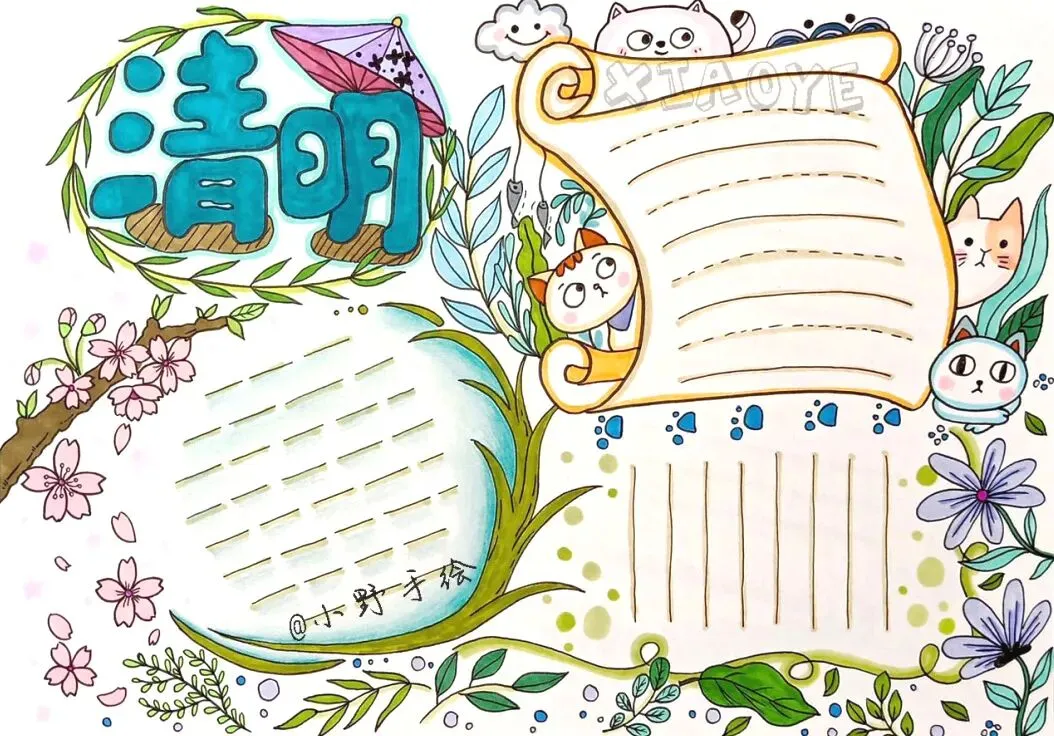 清明
XIAOYE
@小野手绘